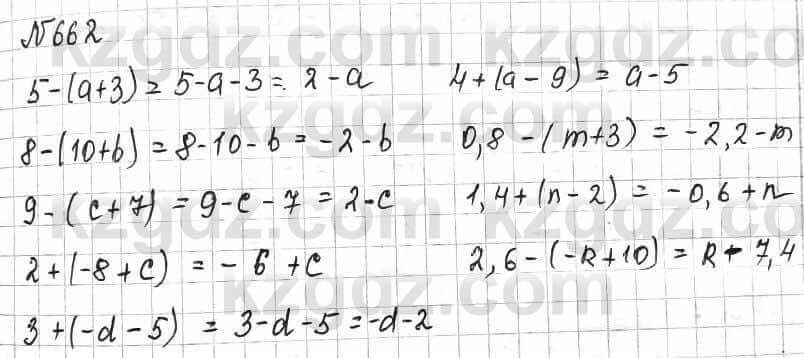 №662
5-(a+3) = 5-a-3 = 2-a
8-(10+b) = 8-10-b = -2-b
9-(c+7) = 9-c-7 = 2-c
2+(-8+c) = -6+c
3+(-d-5) = 3-d-5 = -d-2
4+(a-9) = a-5
0,8-(m+3) = -2,2-m
1,4+(n-2) = -0,6+n
2,6-(-k+10) = k-7,4
kzgdz.com kzgdz.com
kzgdz.com
kzgdz.com kzgdz.com
kzgdz.com